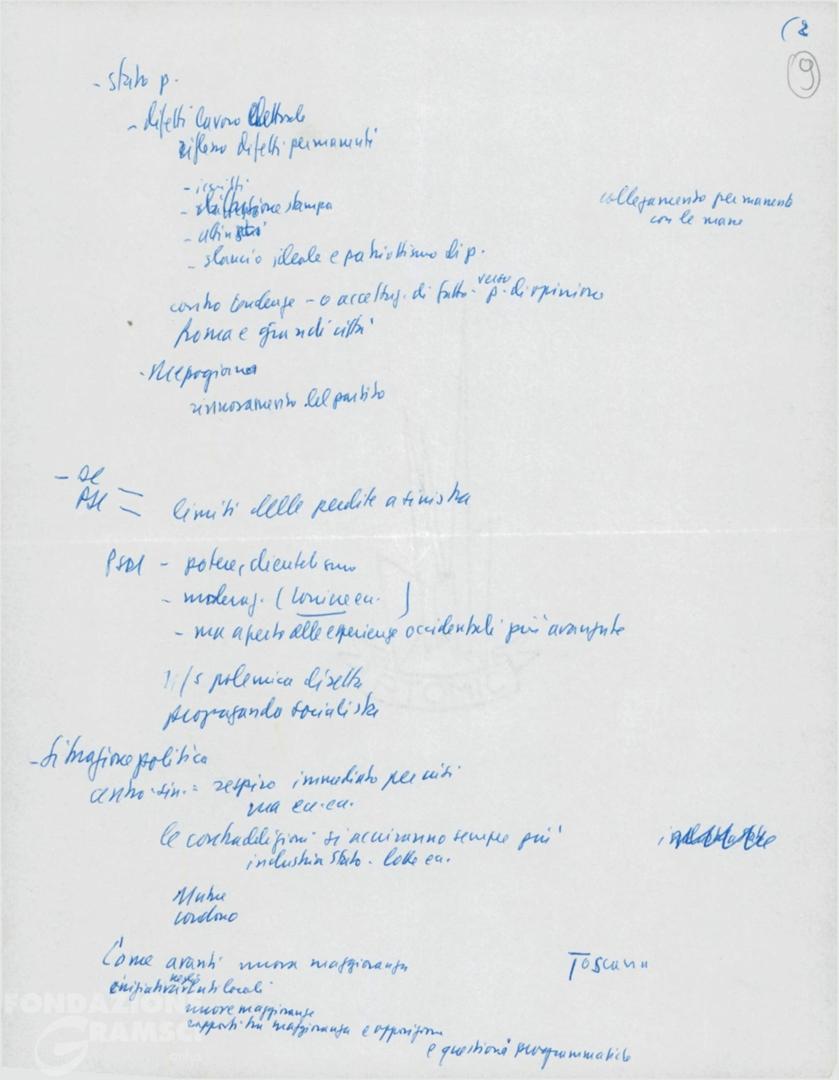 (2
9
- stato p.
- difetti lavoro elettorale
riflesso difetti permanenti
- iscritti
- diffusione stampa
collegamento permanente
con le masse
- slancio ideale e patriottismo di p.
contro tendenze - o accettaz. di fatto - verso p. di opinione
Roma e grandi città
- Mezzogiorno
rinnovamento del partito
- DC
PSI = limiti delle perdite a sinistra
PSDI - potere, clientelismo
- moderaz. ( ec. )
- ma aperto alle esperienze occidentali più avanzate
polemica diretta
propaganda socialista
- Situazione politica
centro-sin. = respiro immediato per crisi
ma ec. ec.
le contraddizioni si acuiranno sempre più
industria Stato - lotte ec.
Mutue
condono
Come avanti nuova maggioranza
Toscana
iniziativa negli enti locali
nuove maggioranze
rapporti tra maggioranza e opposizione
e questioni programmatiche
FONDAZIONE
GRAMSCI
onlus
ATOMIC